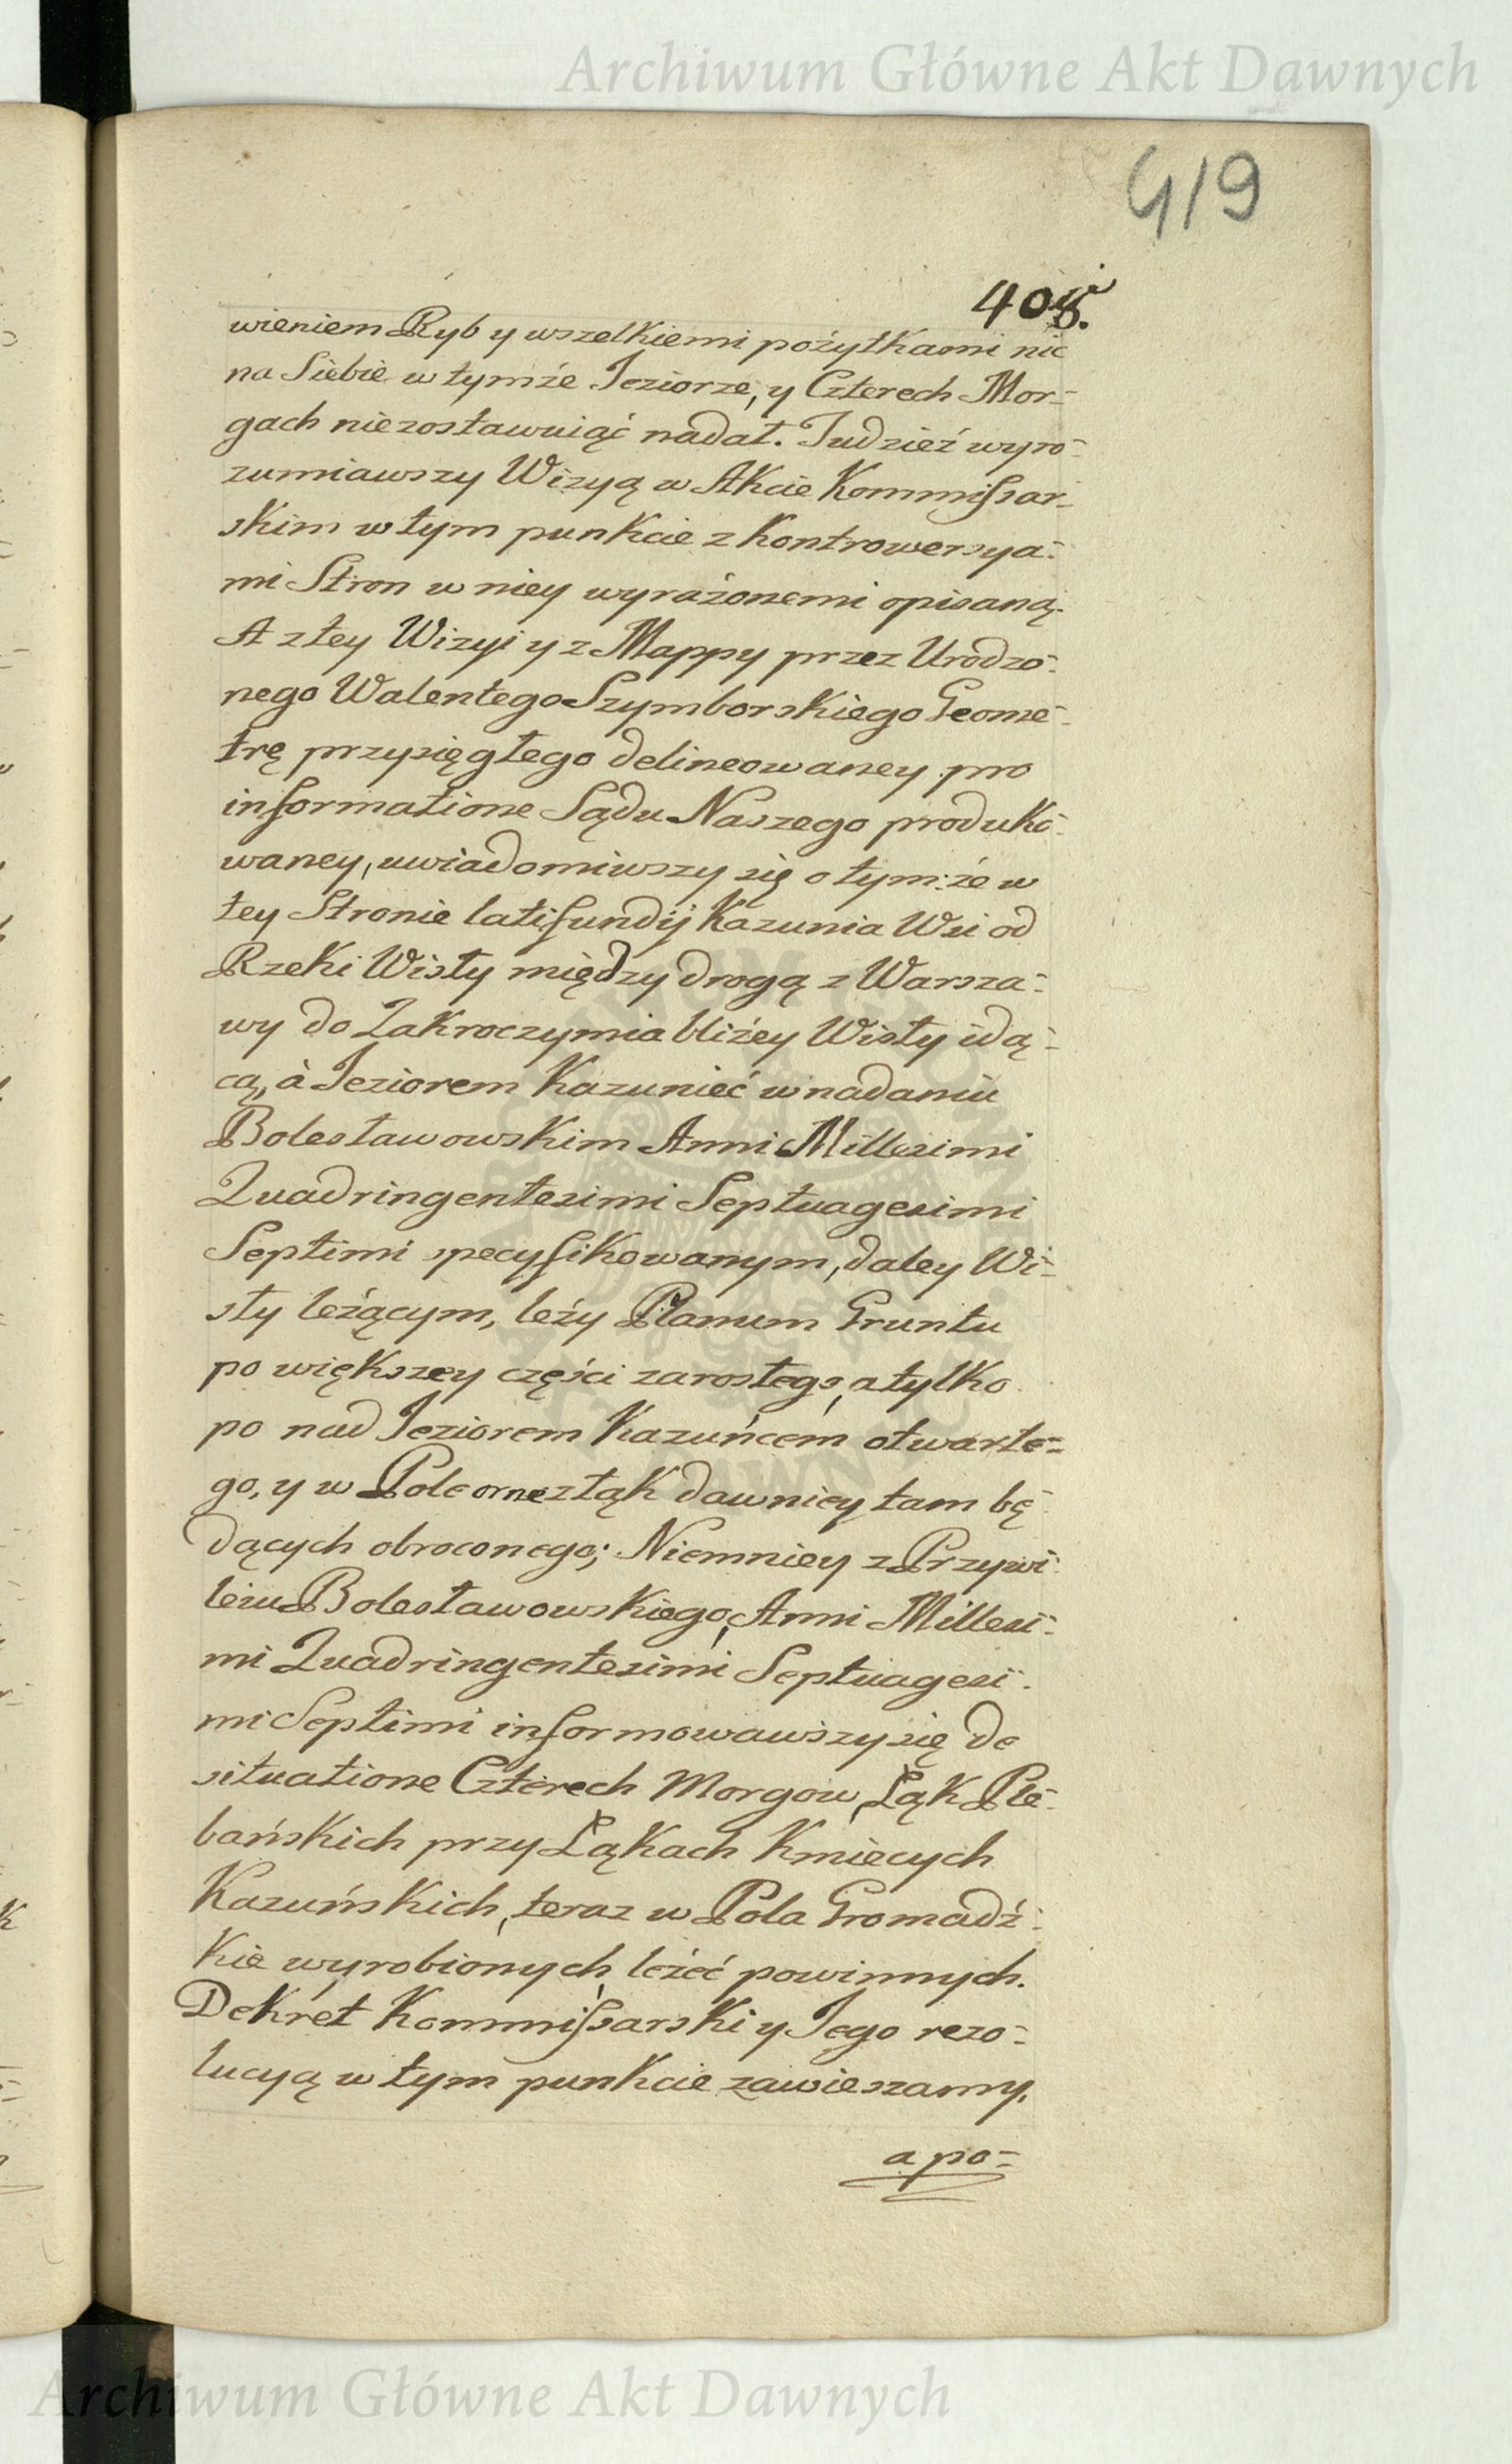 Archiwum Główne Akt Dawnych
419
wieniem Ryb y wszelkiemi pożytkami nic
na Siebie w tymże Jeziorze, y Czterech Mor=
gach niezostawuiąć nadał. Tudzież wyro=
zumiawszy Wizyą w Akcie Kommissar=
skim w tym punkcie z Kontrowersya=
mi Stron w niey wyrażonemi opisaną.
A z tey Wizyi y z Mappy przez Urodzo=
nego Walentego Szymborskiego Geome=
trę przysięgłego delineowaney pro
informatione Sądu Naszego produko=
waney, uwiadomiwszy się o tym: że w
tey Stronie latifundij Kazunia Wsi od
Rzeki Wisły między drogą z Warsza=
wy do Zakroczymia bliżey Wisły idą=
cą, à Jeziorem Kazunieć w nadaniu
Bolesławowskim Anni Millesimi
Quadringentesimi Septuagesimi
Septimi specyfikowanym, daley Wi=
sły leżącym, leży Planum Gruntu
po większey części zarosłego, a tylko
po nad Jeziorem Kazuńcem otwarte=
go, y w Pole orne z łąk dawniey tam bę=
dących obroconego; Niemniey z Przywi=
leiu Bolesławowskiego, Anni Millesi=
mi Quadringentesimi Septuagesi=
mi Septimi informowawszy się de
situatione Czterech Morgow, Łąk Ple=
bańskich przy Łąkach Kmiecych
Kazuńskich, teraz w Pola Gromadź=
kie wyrobionych, leżeć powinnych.
Dekret Kommissarski y Jego rezo=
lucyą w tym punkcie zawieszamy,
a po=
Archiwum Główne Akt Dawnych